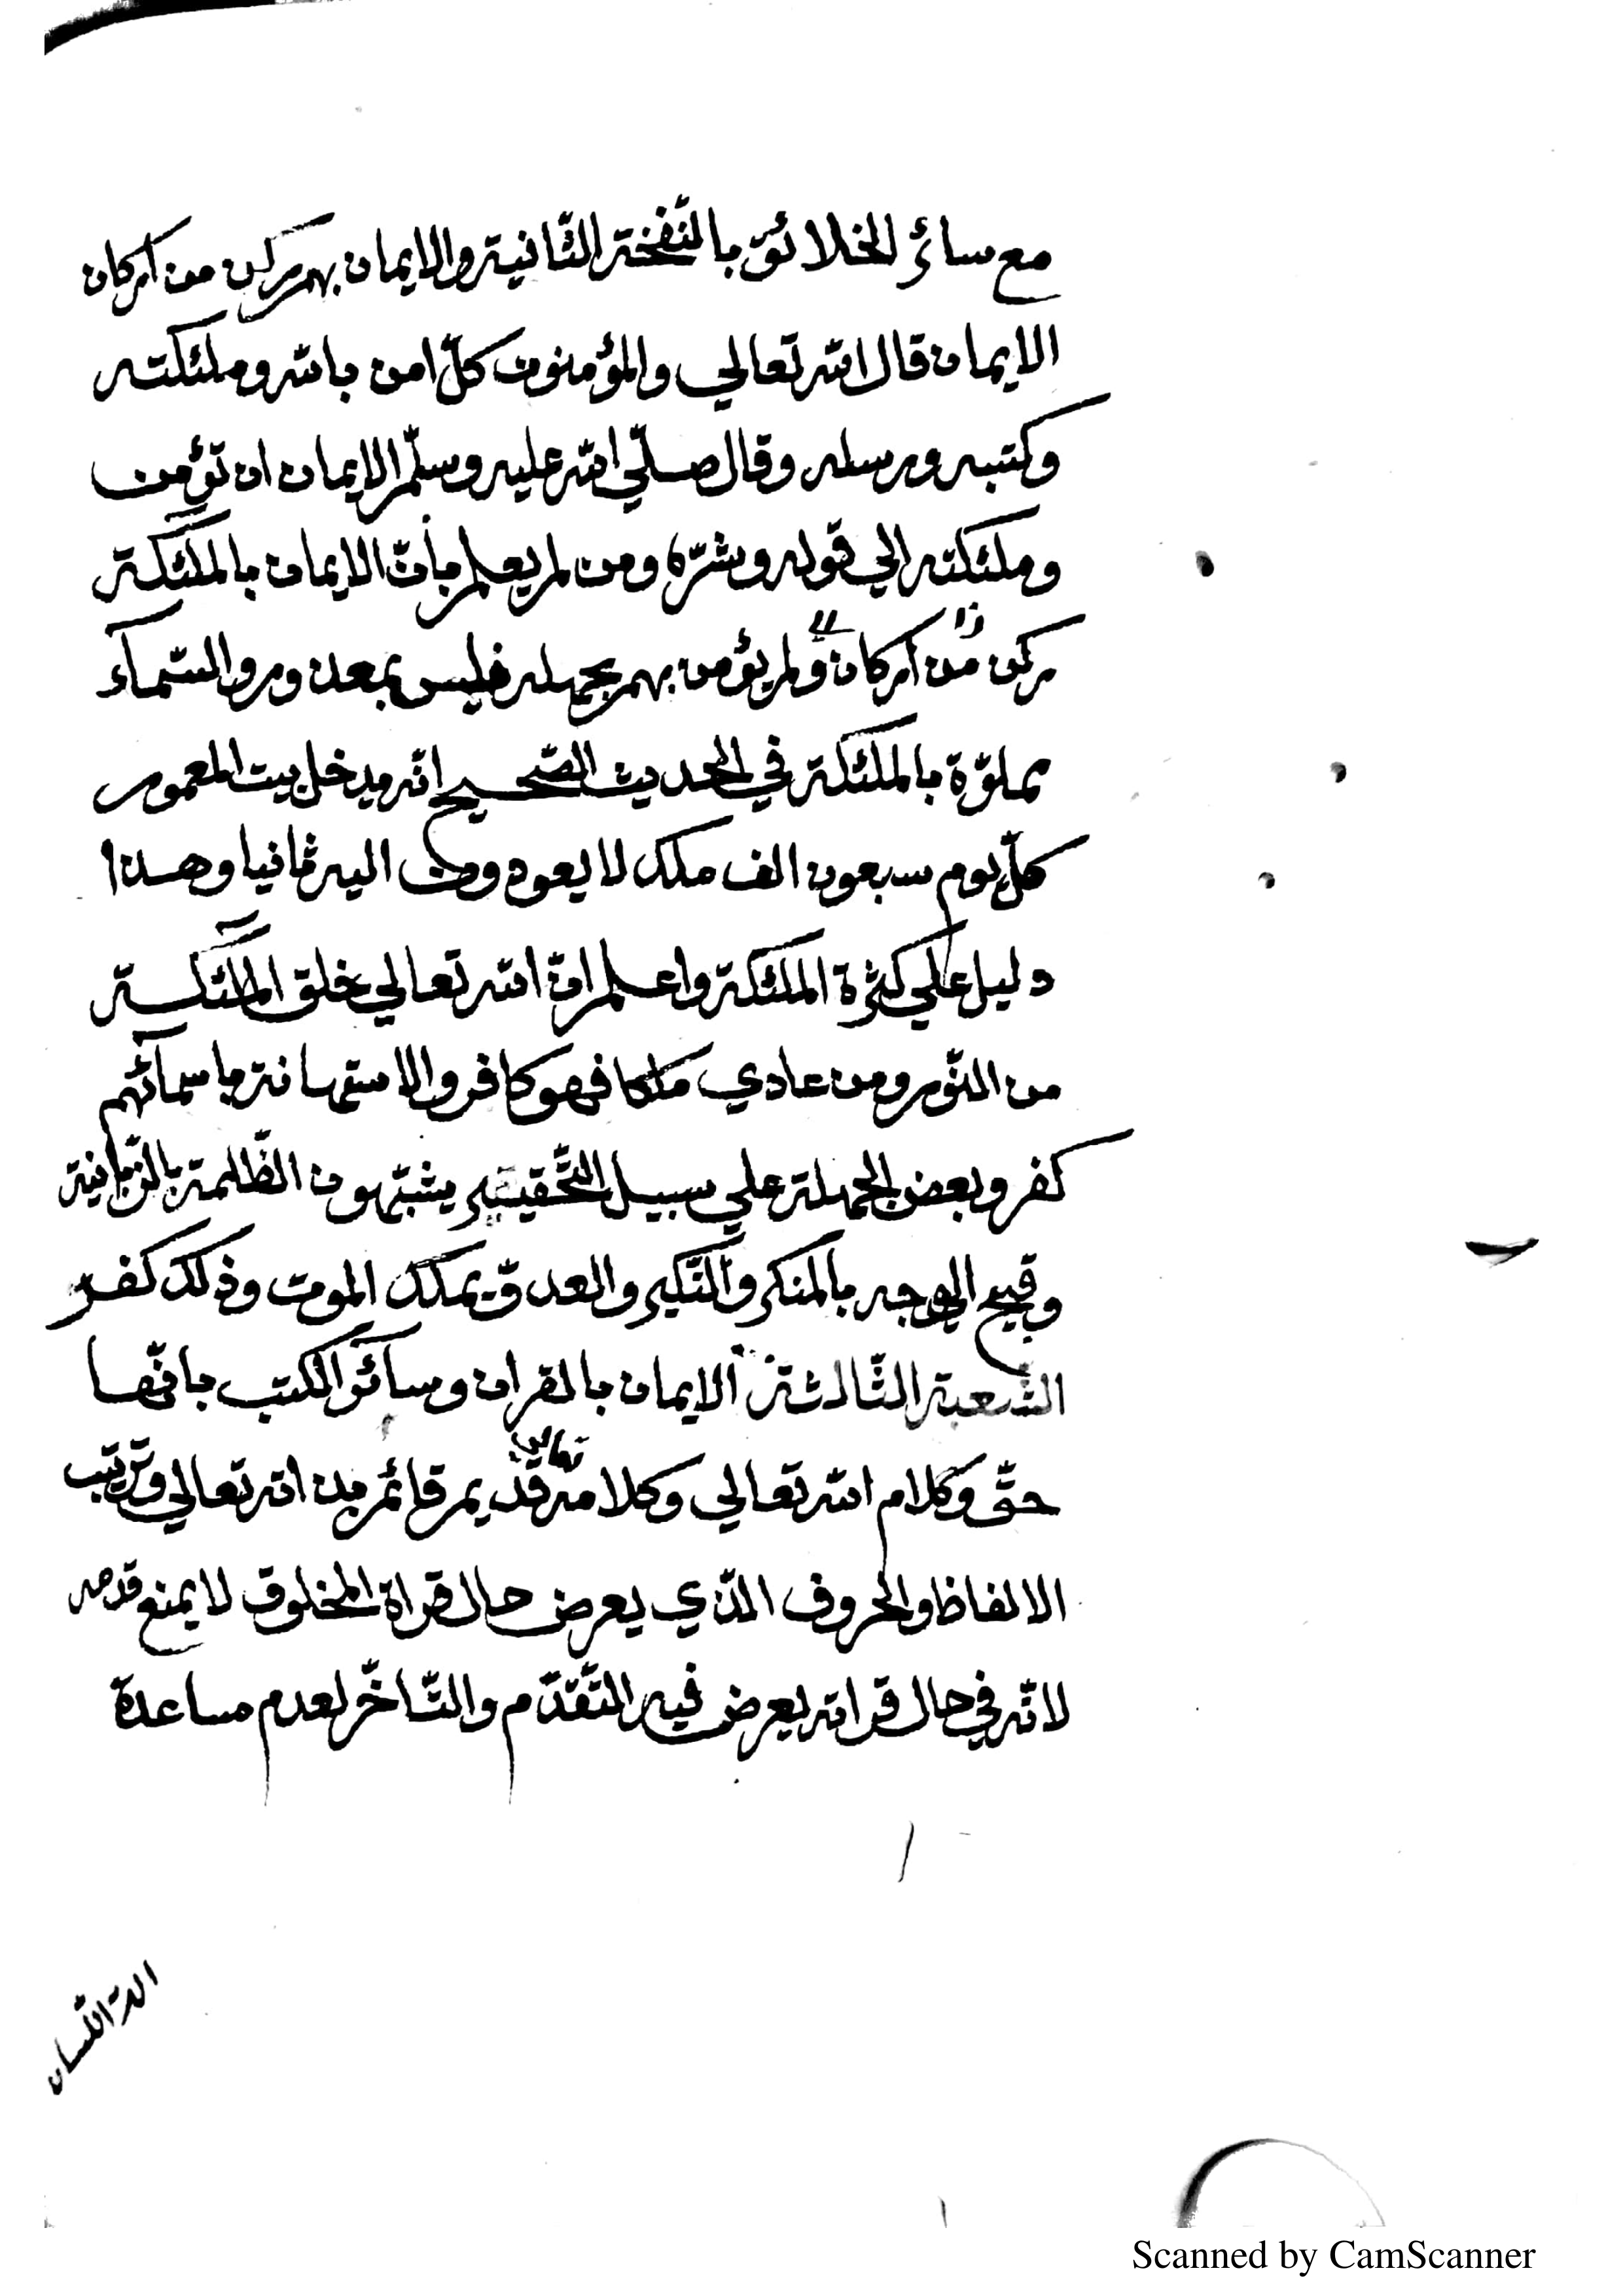 مع سائر الخلائق بالنّفخة الثّانية والايمان بهم ركن من اركان
الايمان قال الله تعالي والمؤمنون كلّ امن بالله وملئكته
وكتبه ورسله وقال صلّي الله عليه وسلّم الايمان ان تؤمن
وملئكته الي قوله وشرّه ومن لم يعلم بأنّ الايمان بالملئكة
ركن من اركان ولم يؤمن بهم بجهله فليس بمعذور والسّمآء
مملوّة بالملئكة في الحديث الصّحيح انّه يدخل بيت المعمور
كلّ يوم سبعون الف ملك لا يعودون اليه ثانيا وهذا
دليل علي كثرة الملئكة واعلم انّ الله تعالي خلق الملئكة
من النّور ومن عادي ملكا فهو كافر والاستهانة باسمآئهم
كفر وبعض الجهلة علي سبيل التّحقير يشبّهون الظّلمة بالزّبانية
وقبيح الوجه بالمنكر والنّكير والعدوّ بملك الموت وذلك كفر
الشّعبة الثّالثة الايمان بالقران وسائر الكتب بانّها
حقّ وكلام الله تعالي وكلامه تعالي قديم قائم بذات الله تعالي وترتيب
الالفاظ والحروف الّذي يعرض حال قراة المخلوق لا يمنع قدمه
لانّه في حال قراته يعرض فيه التّقدّم والتّاخّر لعدم مساعدة
الة اللّسان
Scanned by CamScanner